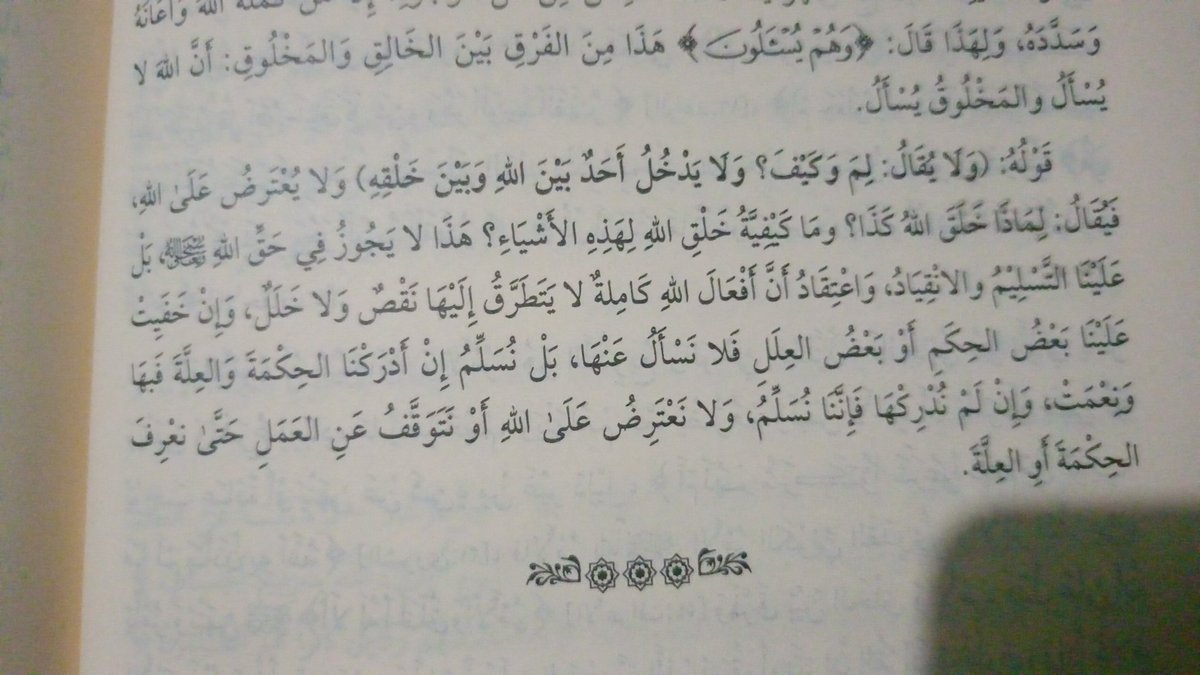 كَمَّلَهُ اللهُ وَأَعَانَهُ
وَسَدَّدَهُ، وَلِهَذَا قَالَ: ﴿وَهُمْ يُسْـَٔلُونَ﴾ هَذَا مِنَ الفَرْقِ بَيْنَ الخَالِقِ وَالمَخْلُوقِ: أَنَّ اللهَ لا
يُسْأَلُ والمَخْلُوقُ يُسْأَلُ.
قَوْلُهُ: (وَلَا يُقَالُ: لِمَ وَكَيْفَ؟ وَلَا يَدْخُلُ أَحَدٌ بَيْنَ اللهِ وَبَيْنَ خَلْقِهِ) وَلا يُعْتَرَضُ عَلَىٰ اللهِ،
فَيُقَالُ: لِمَاذَا خَلَقَ اللهُ كَذَا؟ ومَا كَيْفِيَّةُ خَلْقِ اللهِ لِهَذِهِ الأَشْيَاءِ؟ هَذَا لا يَجُوزُ فِي حَقِّ اللهِ ، بَلْ
عَلَيْنَا التَّسْلِيْمُ والانْقِيَادُ، وَاعْتِقَادُ أَنَّ أَفْعَالَ اللهِ كَامِلةٌ لا يَتَطَرَّقُ إِلَيْهَا نَقْصٌ وَلا خَلَلٌ، وَإِنْ خَفَيِتْ
عَلَيْنَا بَعْضُ الحِكَمِ أَوْ بَعْضُ العِلَلِ فَلا نَسْأَلُ عَنْهَا، بَلْ نُسَلِّمُ إِنْ أَدْرَكْنَا الحِكْمَةَ وَالعِلَّةَ فَبِهَا
وَنِعْمَتْ، وَإِنْ لَمْ نُدْرِكْهَا فَإِنَّنَا نُسَلِّمُ، وَلا نَعْتَرِضُ عَلَىٰ اللهِ أَوْ نَتَوَقَّفُ عَنِ العَمَلِ حَتَّىٰ نعْرِفَ
الحِكْمَةَ أَوِ العِلَّةَ.